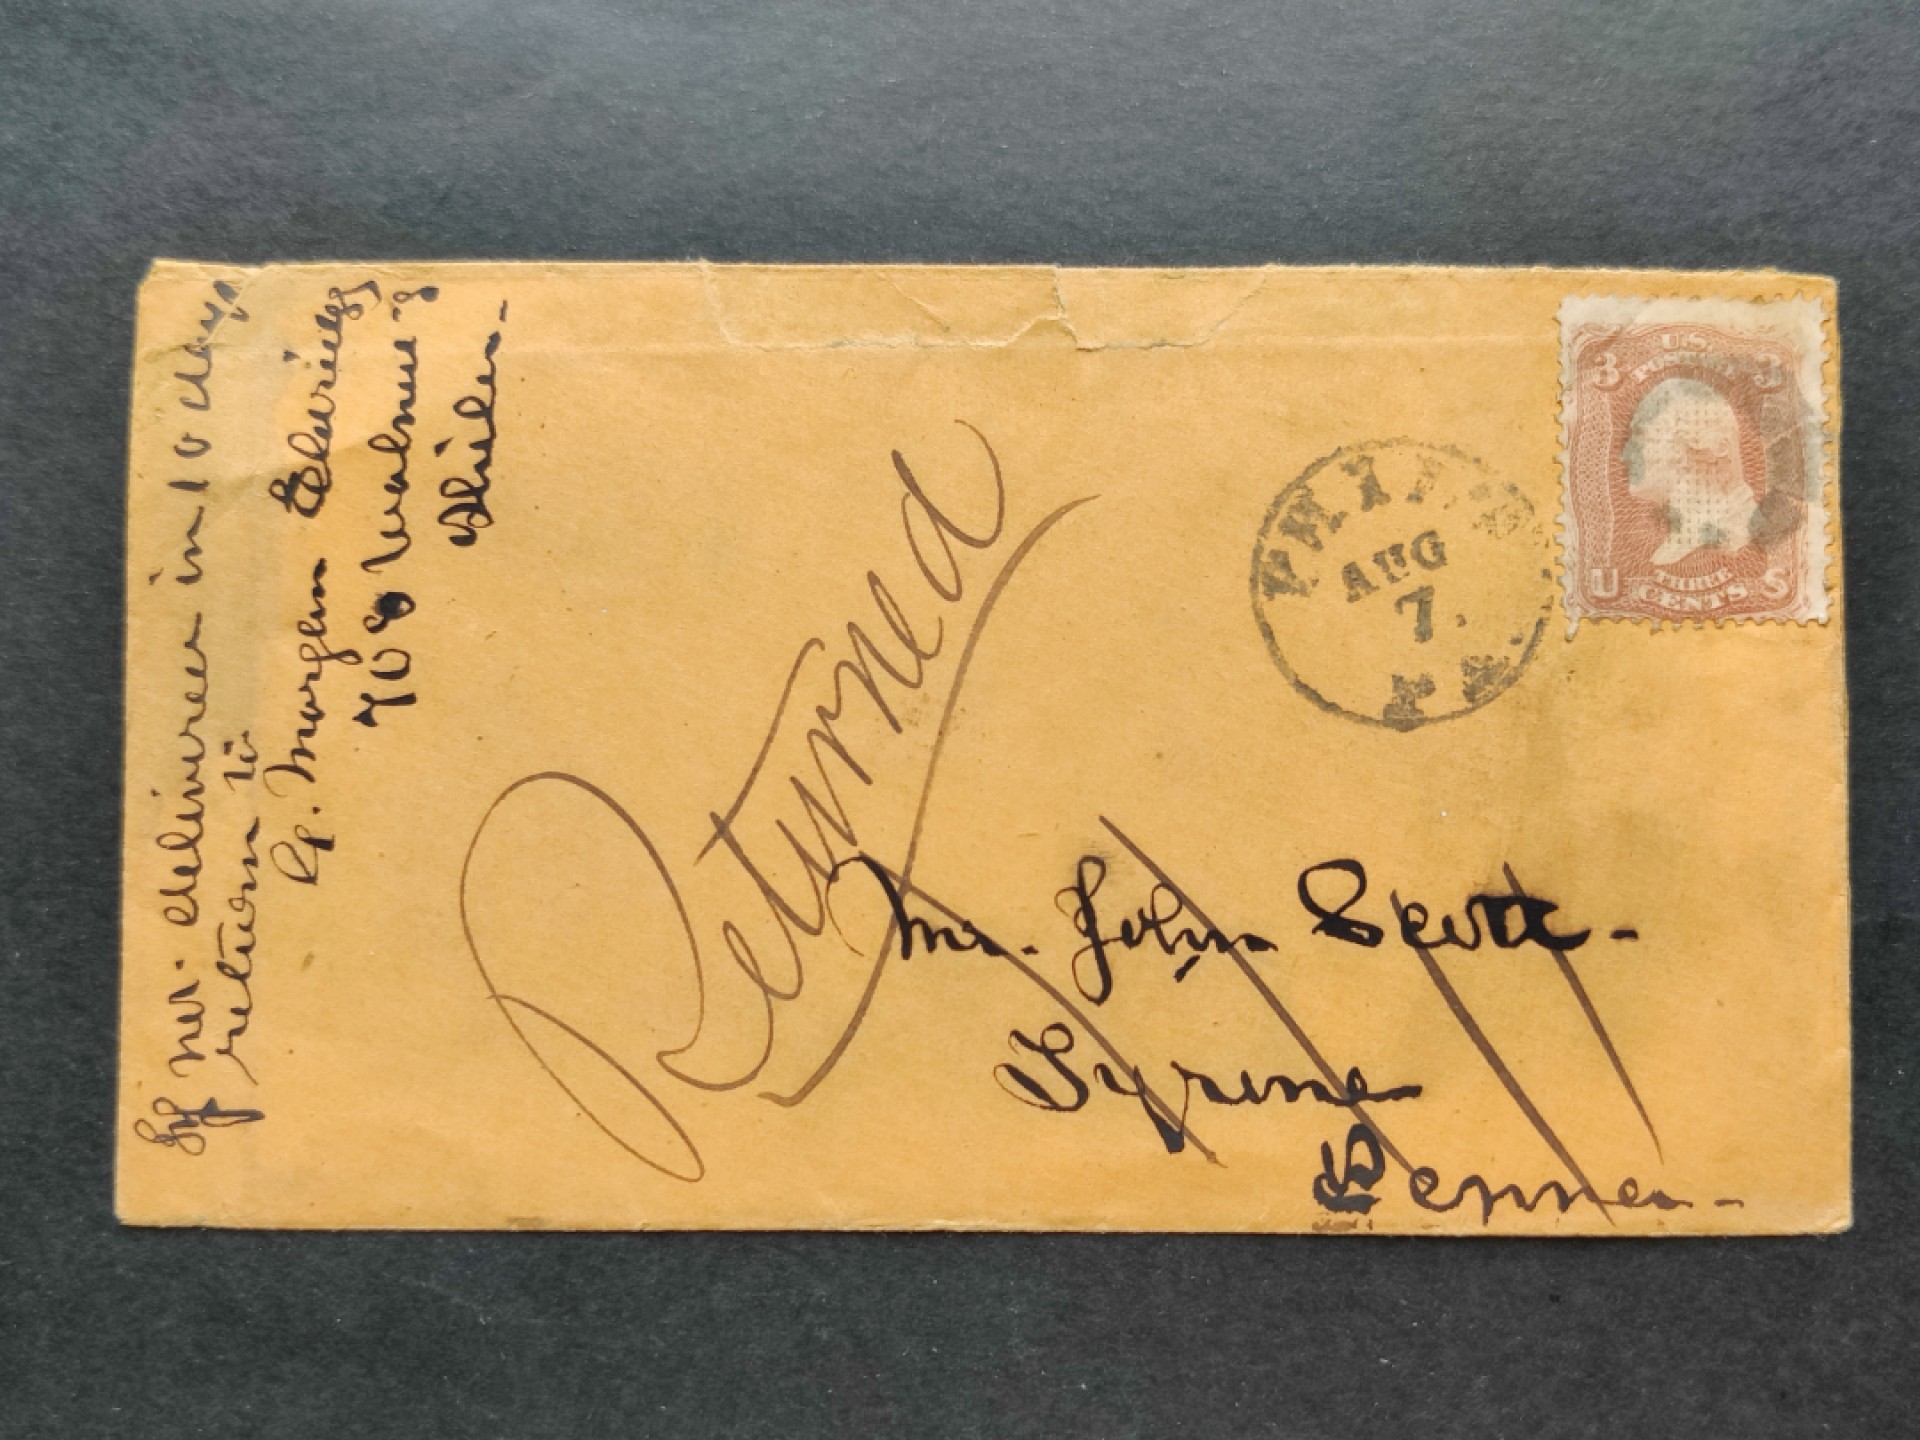 If not delivered in 10 days
return to
G. Morgan Eldridge
708 Walnut St
Phila
Returned
PHILA
AUG
7.
PA.
3 U.S. 3
POSTAGE
U THREE S
CENTS
Mr. John Scott -
Pyrene
Penna -